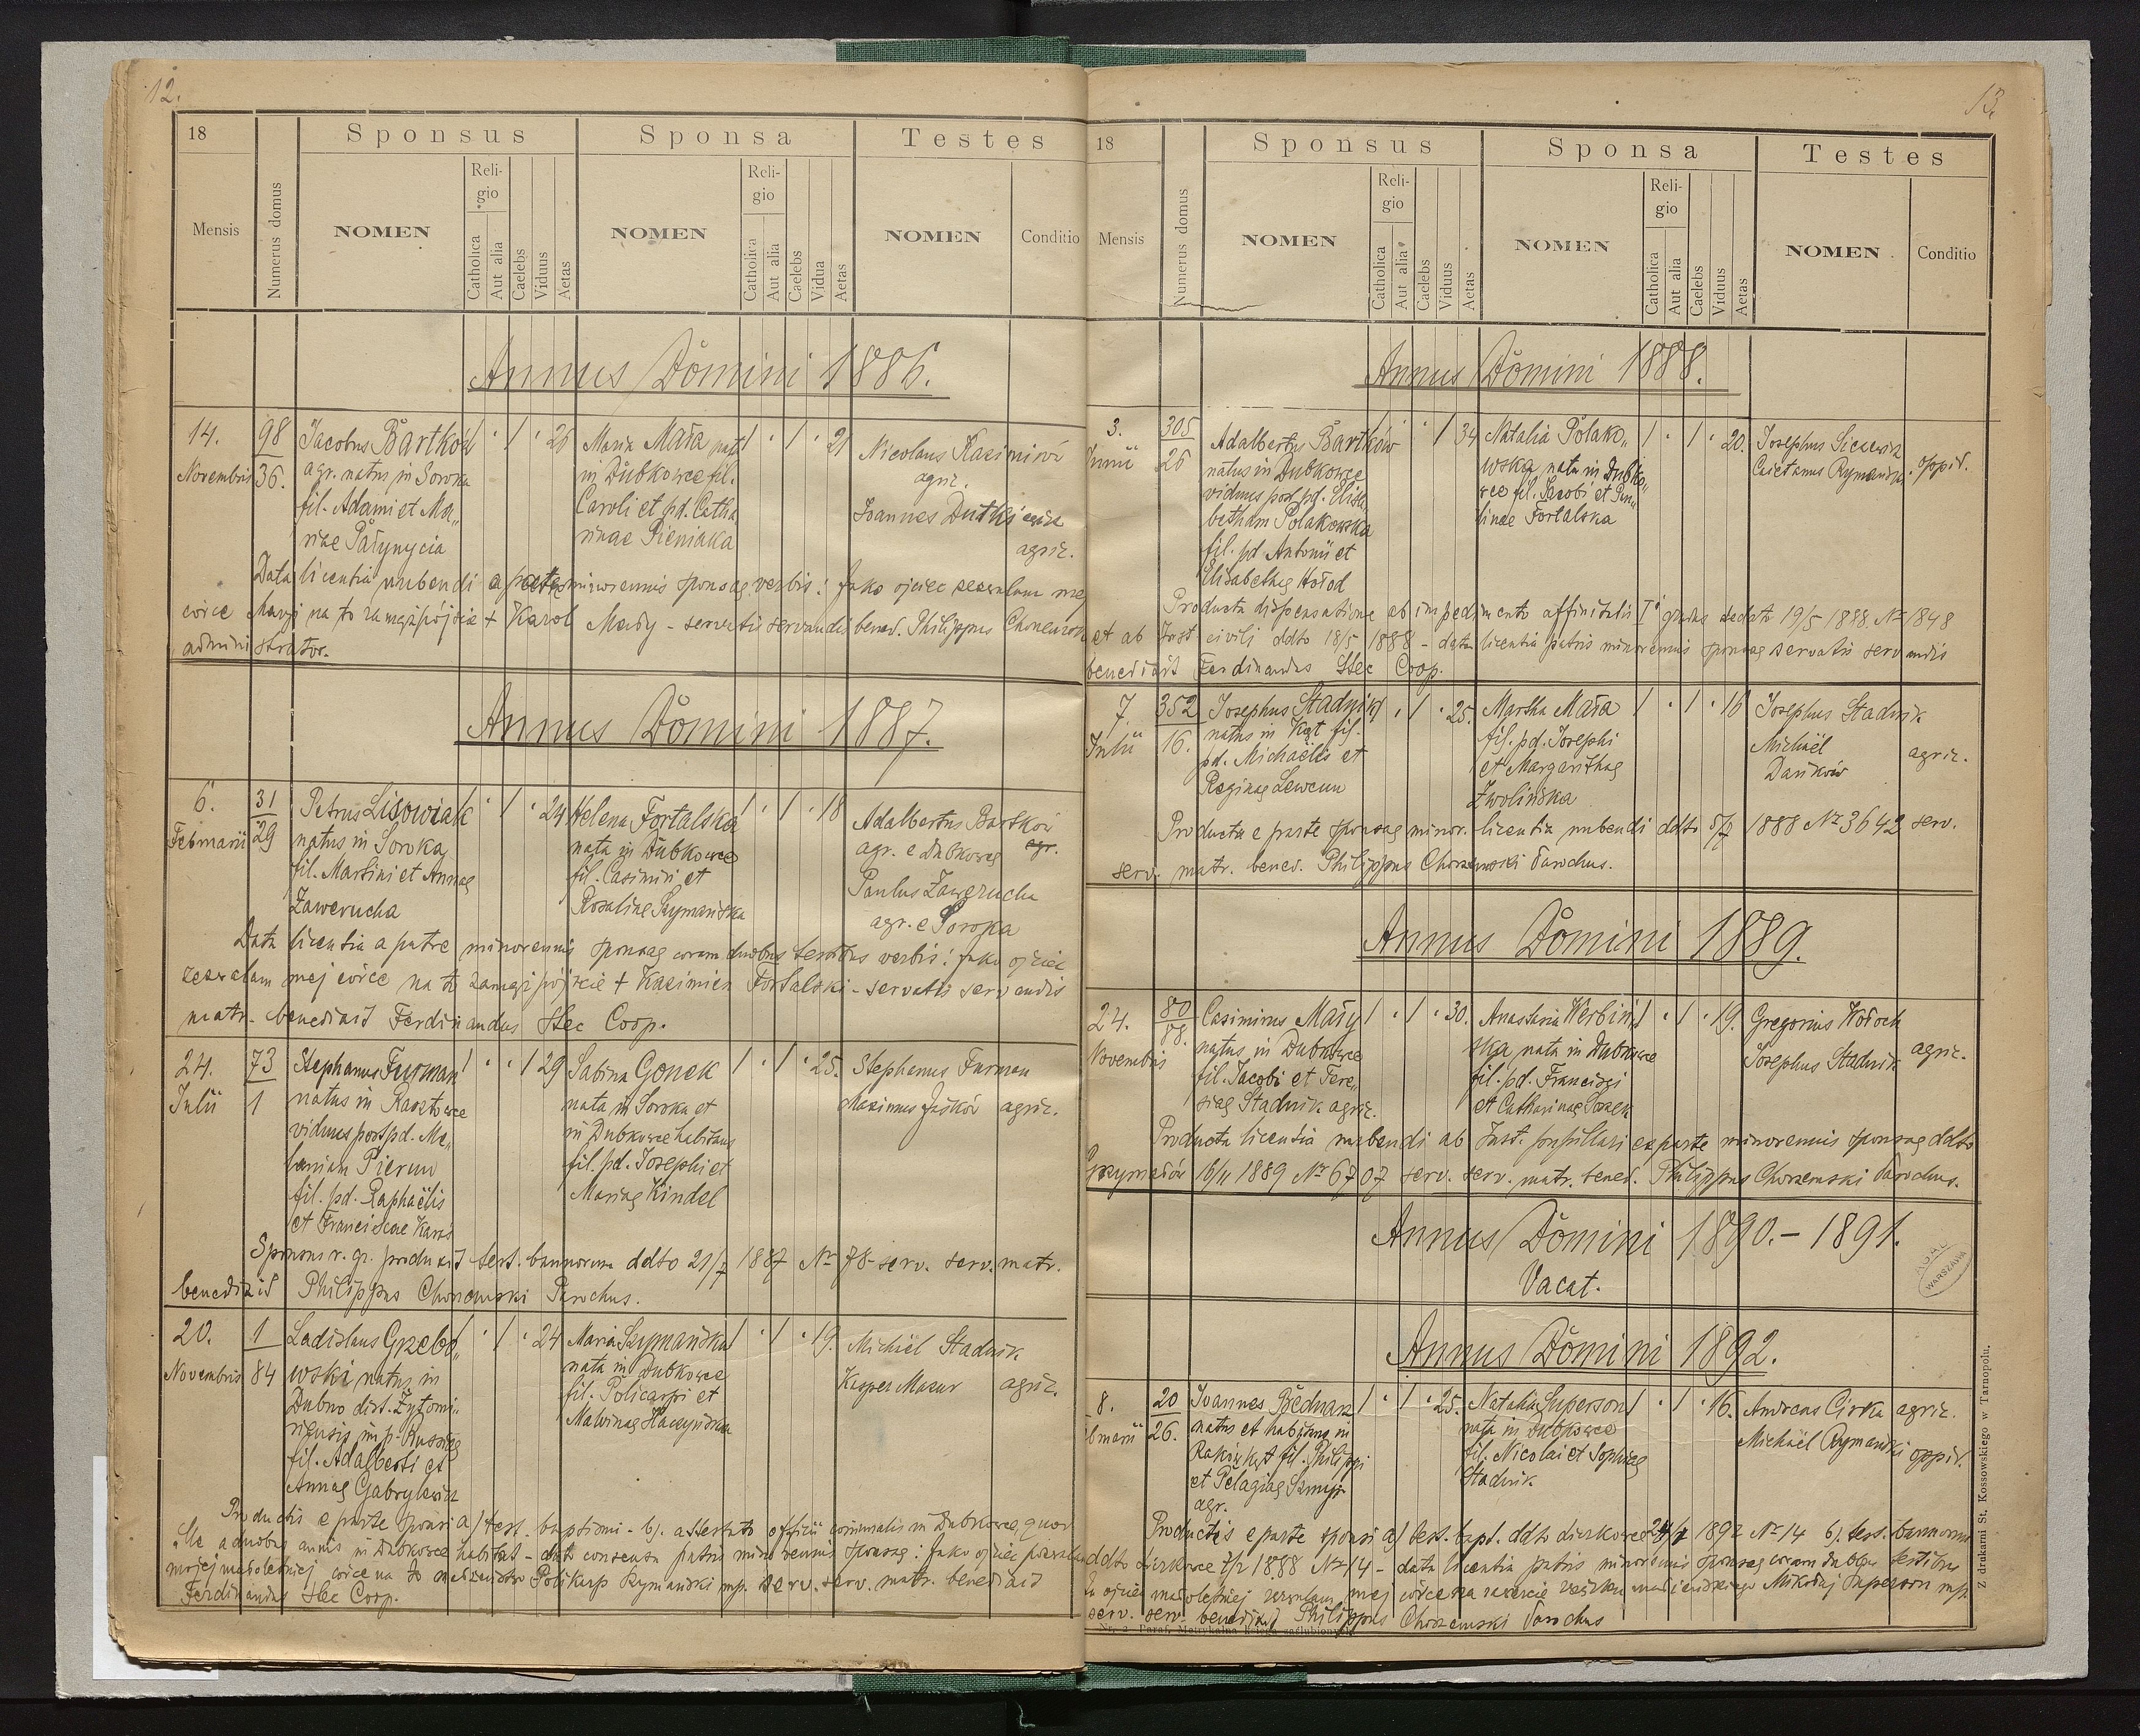 12.
18
Mensis
Numerus domus
Sponsus
NOMEN
Religio
Catholica
Aut alia
Caelebs
Viduus
Aetas
Sponsa
NOMEN
Religio
Catholica
Aut alia
Caelebs
Vidua
Aetas
Testes
NOMEN
Conditio
Annus Domini 1886.
14. Novembris
98
36.
Jacobus Bartków
agr. natus in Soroka
fil. Adami et Ma„
riae Pałynycia
26
Maria Mała nata
in Dubkowce fil.
Caroli et pd. Catha
rinae Pieniaka
21
Nicolaus Kazimirów
agric.
Joannes Dutki
agric.
Data licentia nubendi a patre minorennis sponsae verbis: Jako ojciec zezwalam mej
córce Maryi na to zamążpójście + Karol Mały - servatis servandis bened. Philippus
administrator.
Annus Domini 1887.
6. Februarii
31
29
Petrus Lisowiak
natus in Soroka
fil. Martini et Annae
Zawerucha
24
Helena Fortalska
nata in Dubkowce
fil. Casimiri et
Rosaliae Szymańska
18
Adalbertus Bartków
agr. e Dubkowce
agr.
Paulus Zawerucha
agr. e Soroka
Data licentia a patre minorennis sponsae coram duobus testibus verbis: Jako ojciec
zezwalam mej córce na to zamążpójście + Kazimierz Fortalski - servatis servandis
matr. benedixit Ferdinandus Stec Coop.
24. Julii
73
1
Stephanus Furman
natus in Rasztowce
viduus post pd. Me„
laniam Pierun
fil. pd. Raphaëlis
et Franciscae Karaś
29
Sabina Gonek
nata in Soroka et
in Dubkowce habitans
fil. pd. Josephi et
Mariae Kindel
25.
Stephanus Furman
Maximus Jaśków agric.
Sponsus r. gr. produxit test. bannorum ddto 21/7 1887 Nr 78 serv. serv. matr.
benedixit Philippus Chorzemski Parochus.
20. Novembris
1
84
Ladislaus Grzebo„
wski natus in
Dubno dist. Żytomi„
riensis imp. Russiae
fil. Adalberti et
Annae Gabrylewicz
24
Maria Szymańska
nata in Dubkowce
fil. Policarpi et
Malwinae Haczyńska
19.
Michaël Stadnik
Kasper Mazur agric.
Productis e parte sponsi a) test. baptismi - b). attestato officii communalis in Dubkowce, quod
ille a duobus annis in Dubkowce habitat - dato consensu patris minorennis sponsae: Jako ojciec pozwalam
mojej małoletniej córce na to małżeństwo Polikarp Rymanski mp. serv. serv. matr. benedixit
Ferdinandus Stec Coop.
13.
18
Mensis
Numerus domus
Sponsus
NOMEN
Religio
Catholica
Aut alia
Caelebs
Viduus
Aetas
Sponsa
NOMEN
Religio
Catholica
Aut alia
Caelebs
Viduus
Aetas
Testes
NOMEN
Conditio
Annus Domini 1888.
3. Junii
305
26
Adalbertus Bartków
natus in Dubkowce
viduus post pd. Elisa
betham Polakowska
fil. pd Antonii et
Elisabethae Hołod
34
Natalia Polako„
wska nata in Dubko„
wce fil. Jacobi et Pau„
linae Fortalska
20.
Josephus
Caietanus oppid.
Producta dispensatione ab impedimento affinitatis I gradus de dato 19/5 1888 Nr 1848
et ab Inst civili ddto 18/5 1888 - data licentia patris minorennis sponsae servatis servandis
benedixit Ferdinandus Stec Coop.
7. Julii
352
16.
Josephus Stadnik
natus in Kąt fil.
pd. Michaëlis et
Reginae Lewcun
25.
Martha Mała
fil. pd. Josephi
et Margarithae
Zwolińska
16
Josephus Stadnik
Michaël
Dańków agric.
Producta e parte sponsae minor. licentia nubendi ddto 5/7 1888 Nr 3642 serv.
serv. matr. bened. Philippus Chorzemski Parochus.
Annus Domini 1889.
24. Novembris
80
88.
Casimirus Mały
natus in Dubkowce
fil. Jacobi et Tere„
siae Stadnik agric.
30.
Anastasia Werbiń„
ska nata in Dubkowce
fil. pd. Francisci
et Catharinae
19.
Gregorius Wołoch
Josephus Stadnik agric.
Producta licentia nubendi ab Inst. pupillari ex parte minorennis sponsae ddto
Grzymałów 16/11 1889 Nr 6707 serv. serv. matr. bened. Philippus Chorzemski Parochus.
Annus Domini 1890. - 1891.
Vacat.
WARSZAWA
Annus Domini 1892.
8.
20
26.
Joannes Bednarz
natus et habitans in
Rakówkąt fil. Philippi
et Pelagiae
agr.
25.
Natalia Superson
nata in Dubkowce
fil. Nicolai et Sophiae
Stadnik
16.
Andreas Cirka agric.
Michaël Rymanski oppid.
Productis e parte sponsi a) test. bapt. ddto 1892 Nr 14 b). test. bannorum
ddto 1888 Nr 14 - data licentia patris minorennis sponsae coram duobus testibus
ojciec małoletniej zezwalam mej córce na zawarcie związku małżeńskiego Mikołaj Superson mp
serv. serv. benedixit Philippus Chorzemski Parochus
Nr. 2. Paraf. Matrykalna księga zaślubionych
Z drukarni St. Kossowskiego w Tarnopolu.